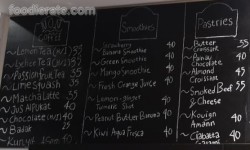 foodierate.com
Non
Coffee
~ Lemon Tea (H/I) 35
~ Lychee Tea (H/I) 35
~ Passion Fruit Tea 35
~ Lime Squash 35
~ Matcha
~ Jus Alpukat 40
~ Chocolate (H/I) 40
~ Bajiur 25
Smoothies
~ Strawberry
Banana Smoothie 40
~ Green Smoothie 40
~ Mango Smoothie 40
~ Fresh Orange Juice 40
~ Lemon Ginger
Tumeric Shot 40
~ Peanut Butter Banana 40
~ Kiwi Agua Fresca 40
Pastries
~ Butter
Croissant 35
~ Pain au
Chocolate 40
~ Almond
Croissant 45
~ Smoked Beef 55
& Cheese
~ Kouign 40
Amann
~ Ciabatta